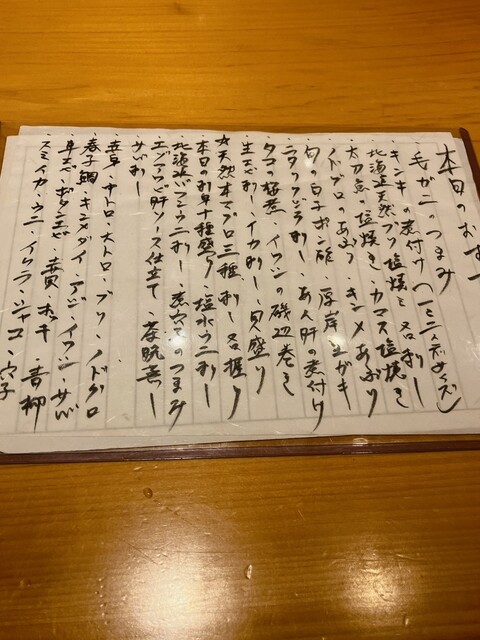 本日のおすすめ
・毛ガニのつまみ
・キンキの煮付け（ミニ、デカサイズ）
・北海道天然ブリ塩焼き 又は刺し
・太刀魚の塩焼き・カマス塩焼き
・ノドグロのあぶり キンメあぶり
・旬の白子ポン酢・厚岸生ガキ
・刺し・あん肝の煮付け
・タコの桜煮・イワシの磯辺巻き
・生エビ刺し・イカ刺し・貝盛り
☆天然本マグロ三種刺し 又は握り
・本日のお刺身十種盛り・塩水ウニ刺し
・北海道バフンウニ刺し 煮穴子のつまみ
・エゾアワビ肝ソース仕立て・茶碗蒸し
・サバ刺し
・赤身・中トロ・大トロ・ブリ・ノドグロ
・春子鯛・キンメダイ・アジ・イワシ・サバ
・車エビ・ボタンエビ・赤貝・ホッキ・青柳
・スミイカ・ウニ・イクラ・シャコ・穴子